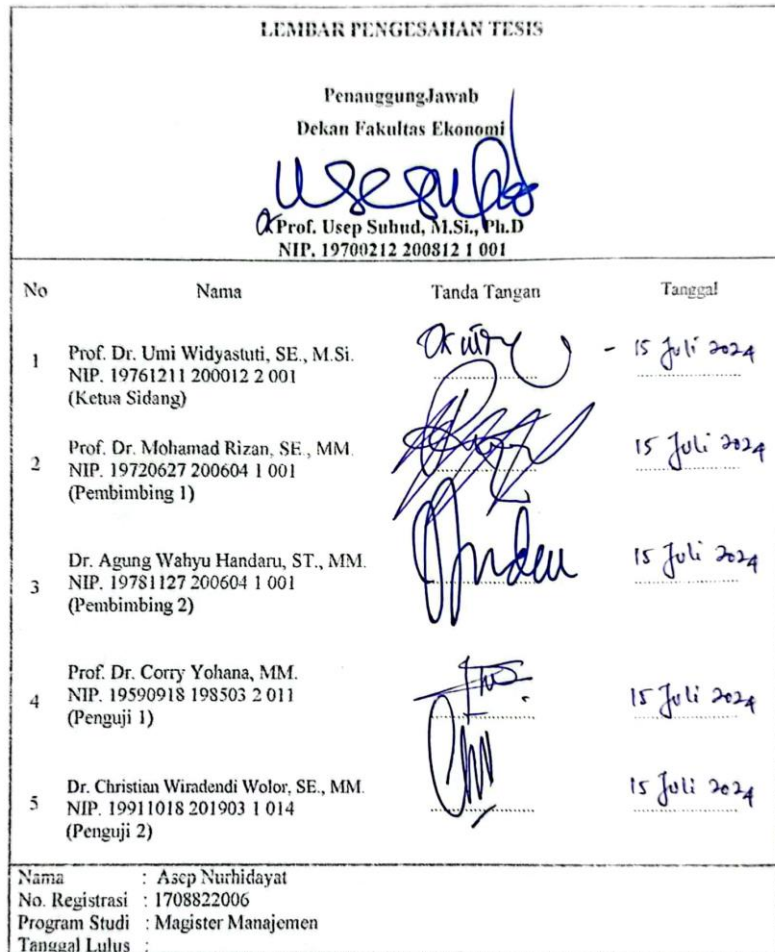 LEMBAR PENGESAHAN TESIS
PenanggungJawab
Dekan Fakultas Ekonomi
Prof. Usep Suhud, M.Si., Ph.D
NIP. 19700212 200812 1 001
No Nama Tanda Tangan Tanggal
1 Prof. Dr. Umi Widyastuti, SE., M.Si. - 15 Juli 2024
NIP. 19761211 200012 2 001
(Ketua Sidang)
2 Prof. Dr. Mohamad Rizan, SE., MM. 15 Juli 2024
NIP. 19720627 200604 1 001
(Pembimbing 1)
3 Dr. Agung Wahyu Handaru, ST., MM. 15 Juli 2024
NIP. 19781127 200604 1 001
(Pembimbing 2)
4 Prof. Dr. Corry Yohana, MM. 15 Juli 2024
NIP. 19590918 198503 2 011
(Penguji 1)
5 Dr. Christian Wiradendi Wolor, SE., MM. 15 Juli 2024
NIP. 19911018 201903 1 014
(Penguji 2)
Nama : Asep Nurhidayat
No. Registrasi : 1708822006
Program Studi : Magister Manajemen
Tanggal Lulus :